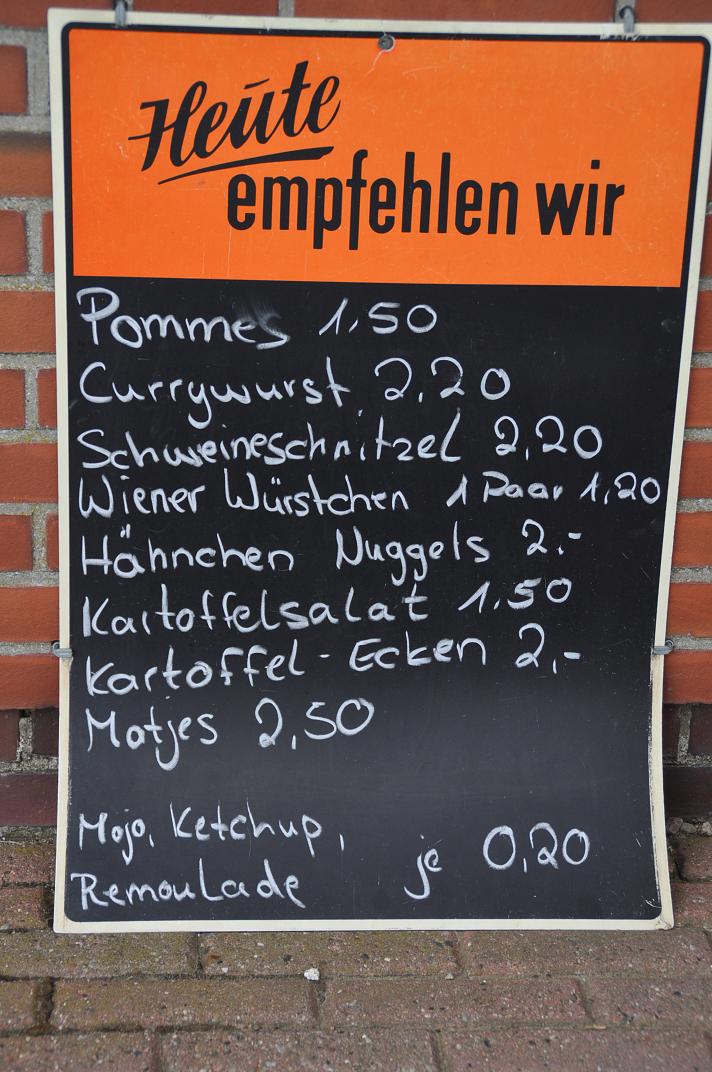 Heute
empfehlen wir
Pommes 1,50
Currywurst 2,20
Schweineschnitzel 2,20
Wiener Würstchen 1 Paar 1,20
Hähnchen Nuggels 2.-
Kartoffelsalat 1.50
Kartoffel-Ecken 2,-
Matjes 2,50
Mojo, Ketchup,
Remoulade je 0,20